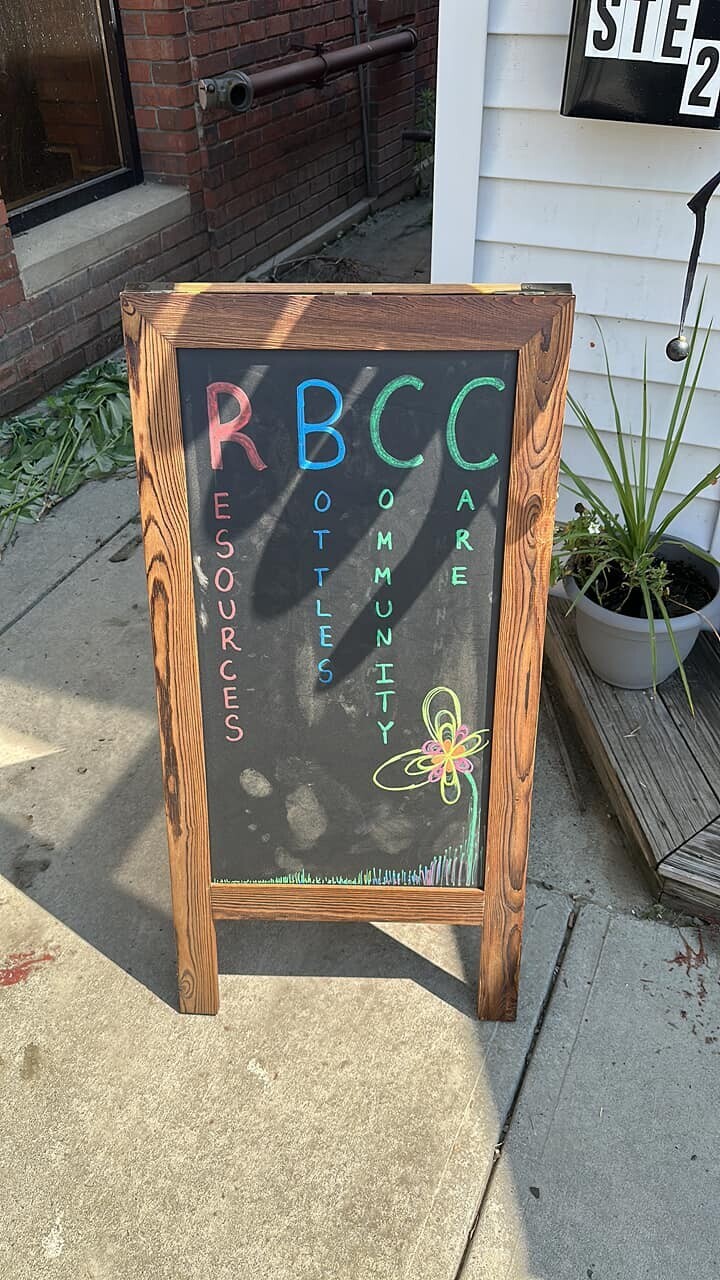 STE
2
R B C C
ESOURCES
OTTLES
OMMUNITY
ARE